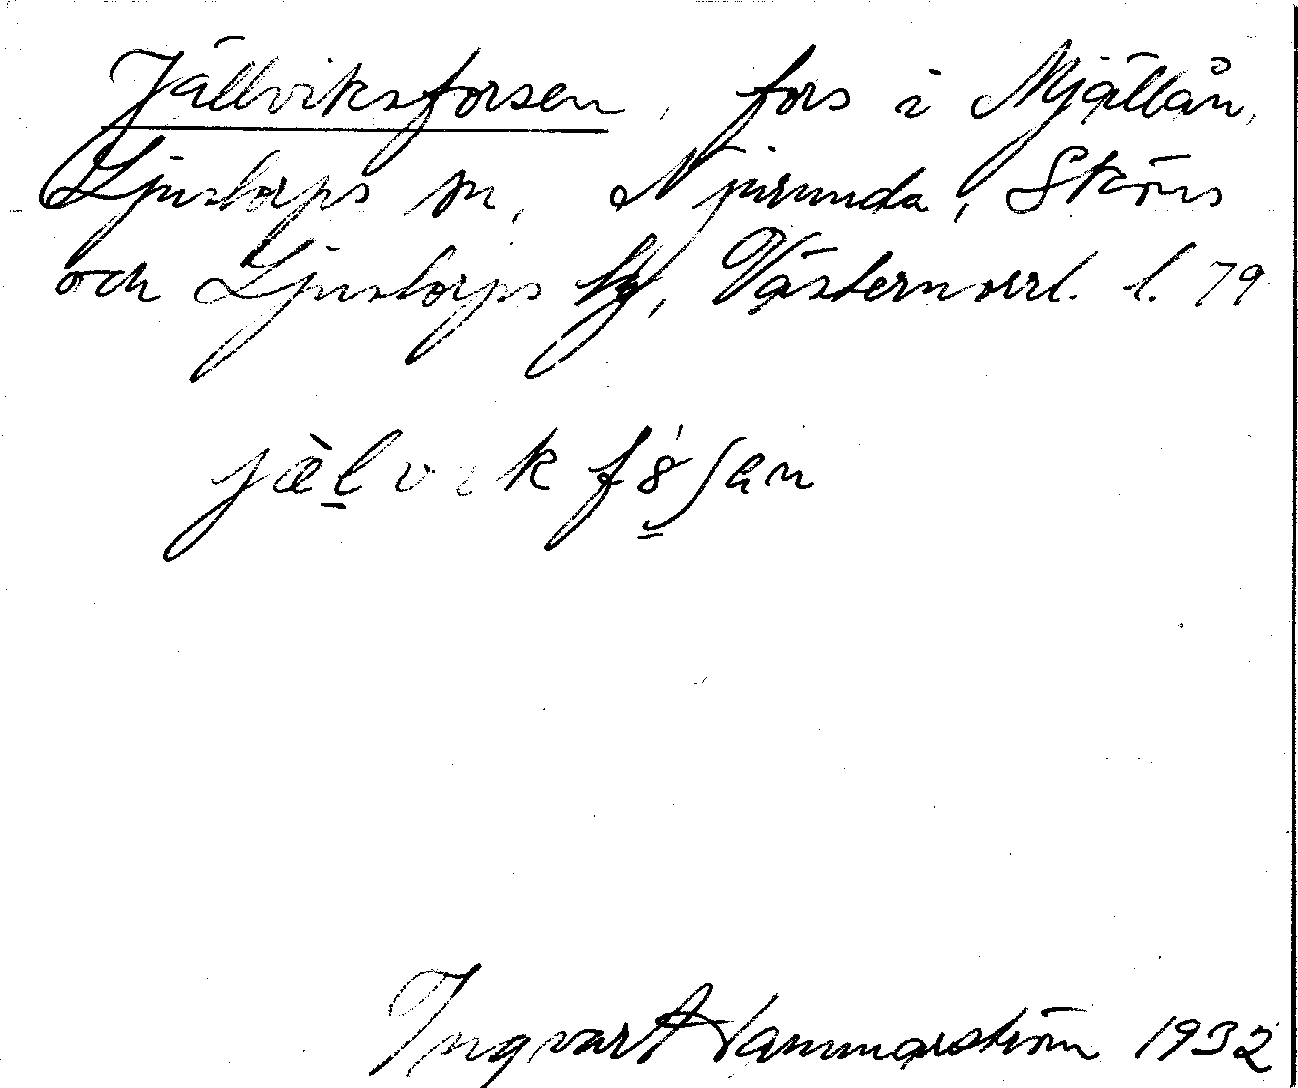 Jällviksforsen, fors i Mjällån,
Ljustorps sn, Njurunda, Sköns
och Ljustorps tg, Västernorrl. l. 79
jæ̀l̠vikfɔ́ʃan
Ingvar Hammarström 1932